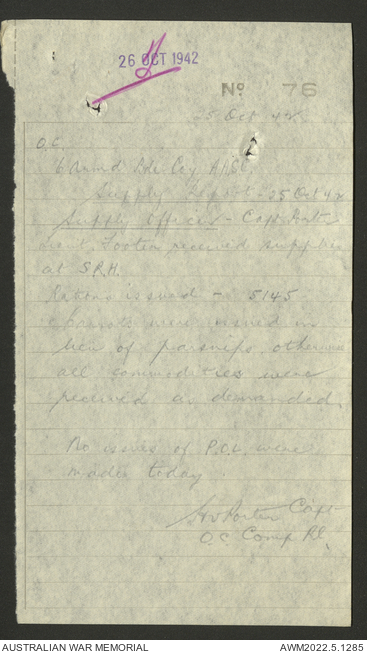 26 OCT 1942
No 76
25 Oct 42
O.C.
6 Armd Bde Coy AASC.
Supply Report - 25 Oct 42
Supply Officer - Capt Porter
Lieut received supplies
at S.R.H.
Rations issued - 5145
Carrots were issued in
lieu of parsnips otherwise
all commodities were
received as demanded.
No issues of P.O.L. were
made today
Porter Capt
O.C Comp Pl.
AUSTRALIAN WAR MEMORIAL
AWM2022.5.1285